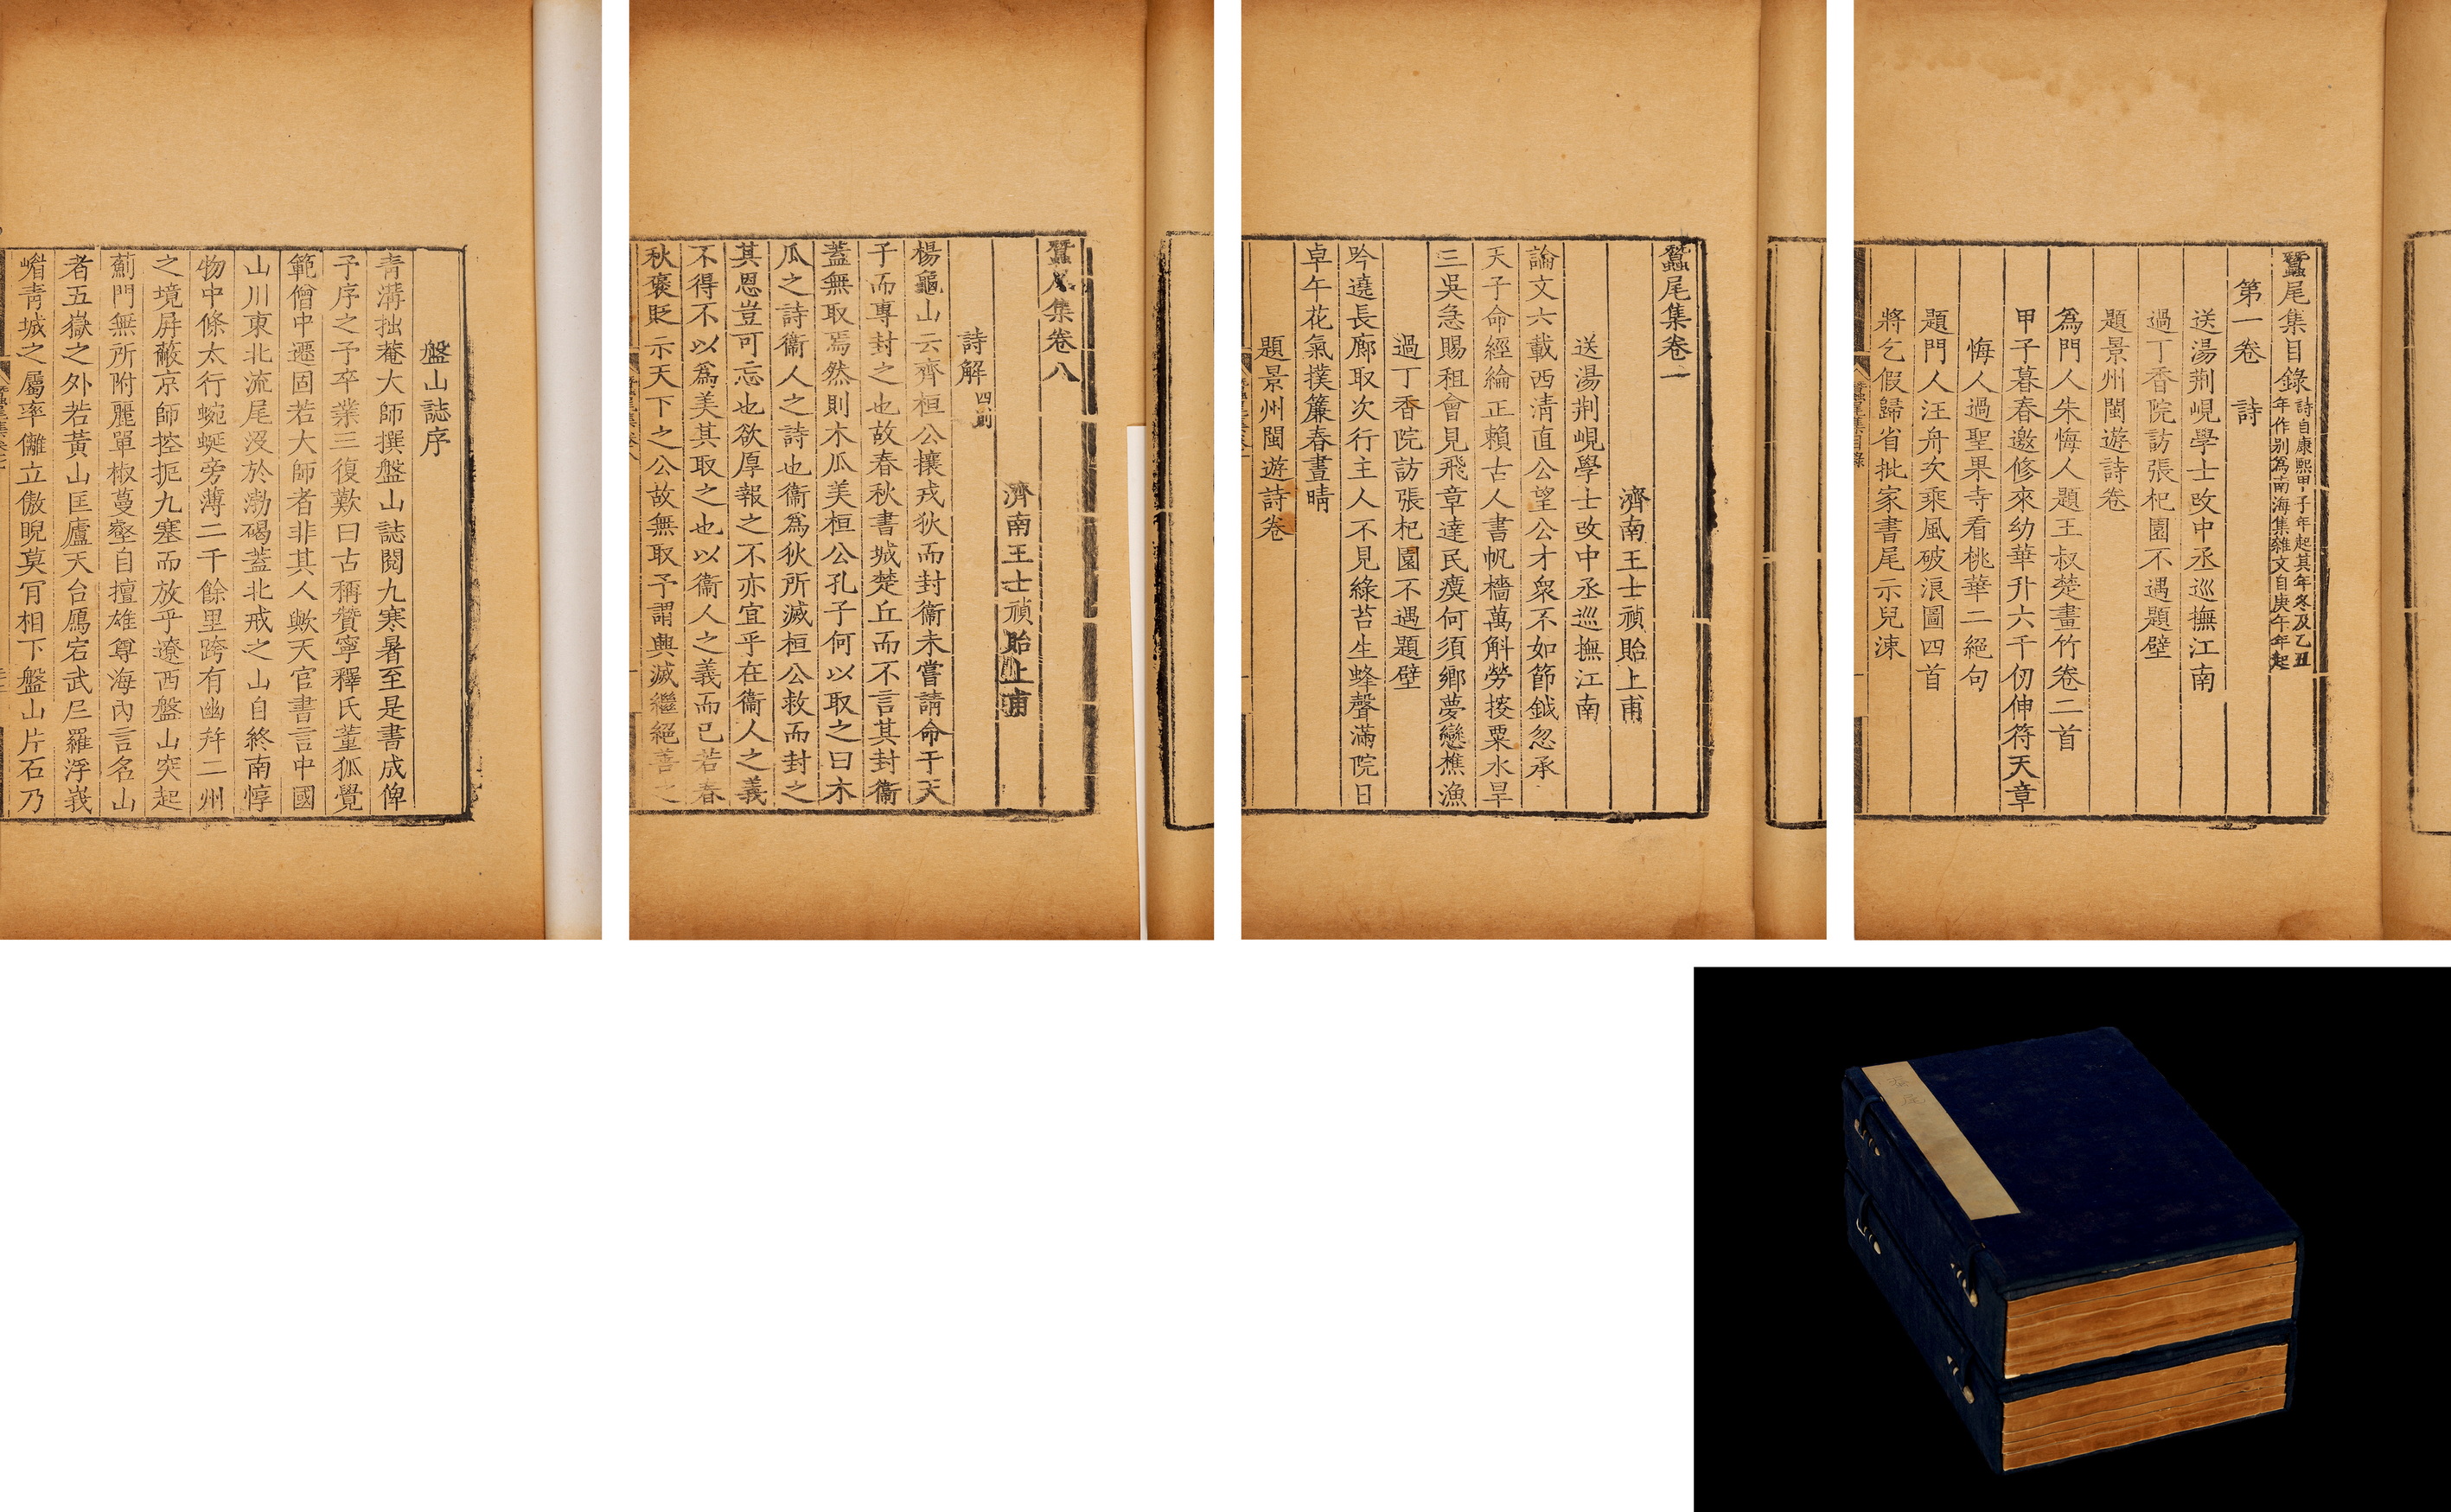 蠶尾集目錄 詩自康熙甲子年起其年冬及乙丑
年作别爲南海集雜文自庚午年起
第一卷 詩
送湯荆峴學士攺中丞巡撫江南
過丁香院訪張杞園不遇題壁
題景州閩遊詩卷
爲門人朱悔人題王叔楚畫竹卷二首
甲子暮春邀修來幼華升六千仞伸符天章
悔人過聖果寺看桃華二絕句
題門人汪舟次乘風破浪圖四首
將乞假歸省批家書尾示兒涑
蠶尾集目錄
蠶尾集卷一
濟南王士禎貽上甫
送湯荆峴學士攺中丞巡撫江南
論文六載西清直公望公才衆不如節鉞忽承
天子命經綸正賴古人書帆檣萬斛勞挍粟水旱
三吳急賜租會見飛章達民瘼何須鄉夢戀樵漁
過丁香院訪張杞園不遇題壁
吟遶長廊取次行主人不見綠苔生蜂聲滿院日
卓午花氣撲簾春晝晴
題景州閩遊詩卷
蠶尾集卷一
蠶尾集卷八
濟南王士禎貽上甫
詩解 四則
楊龜山云齊桓公攘戎狄而封衞未嘗請命于天
子而專封之也故春秋書城楚丘而不言其封衞
蓋無取焉然則木瓜美桓公孔子何以取之曰木
瓜之詩衞人之詩也衞爲狄所滅桓公救而封之
其恩豈可忘也欲厚報之不亦宜乎在衞人之義
不得不以爲美其取之也以衞人之義而已若春
秋襃貶示天下之公故無取予謂興滅繼絕善之
蠶尾集卷八
盤山誌序
青溝拙菴大師撰盤山誌閱九寒暑至是書成俾
予序之予卒業三復歎曰古稱贊寧釋氏董狐覺
範僧中遷固若大師者非其人歟天官書言中國
山川東北流尾沒於渤碣蓋北戒之山自終南惇
物中條太行蜿蜒旁薄二千餘里跨有幽幷二州
之境屏蔽京師控扼九塞而放乎遼西盤山突起
薊門無所附麗單椒蔓壑自擅雄尊海內言名山
者五嶽之外若黃山匡廬天台鴈宕武夷羅浮峩
嵋青城之屬率儷立傲睨莫肎相下盤山片石乃